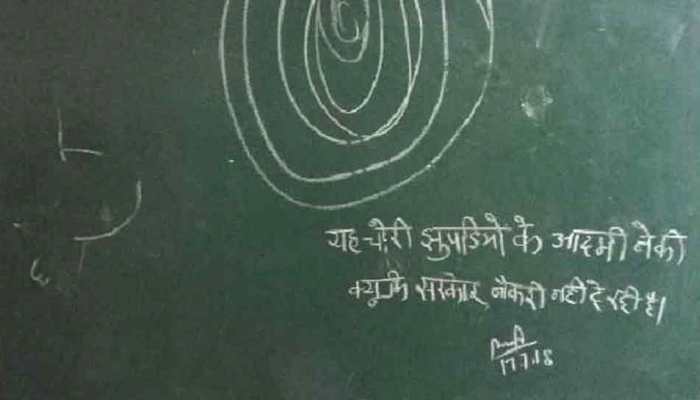 यह चोरी झुपडियो के आदमी नेकी
क्यूकि सरकार नौकरी नही दे रही है।
17.7.18